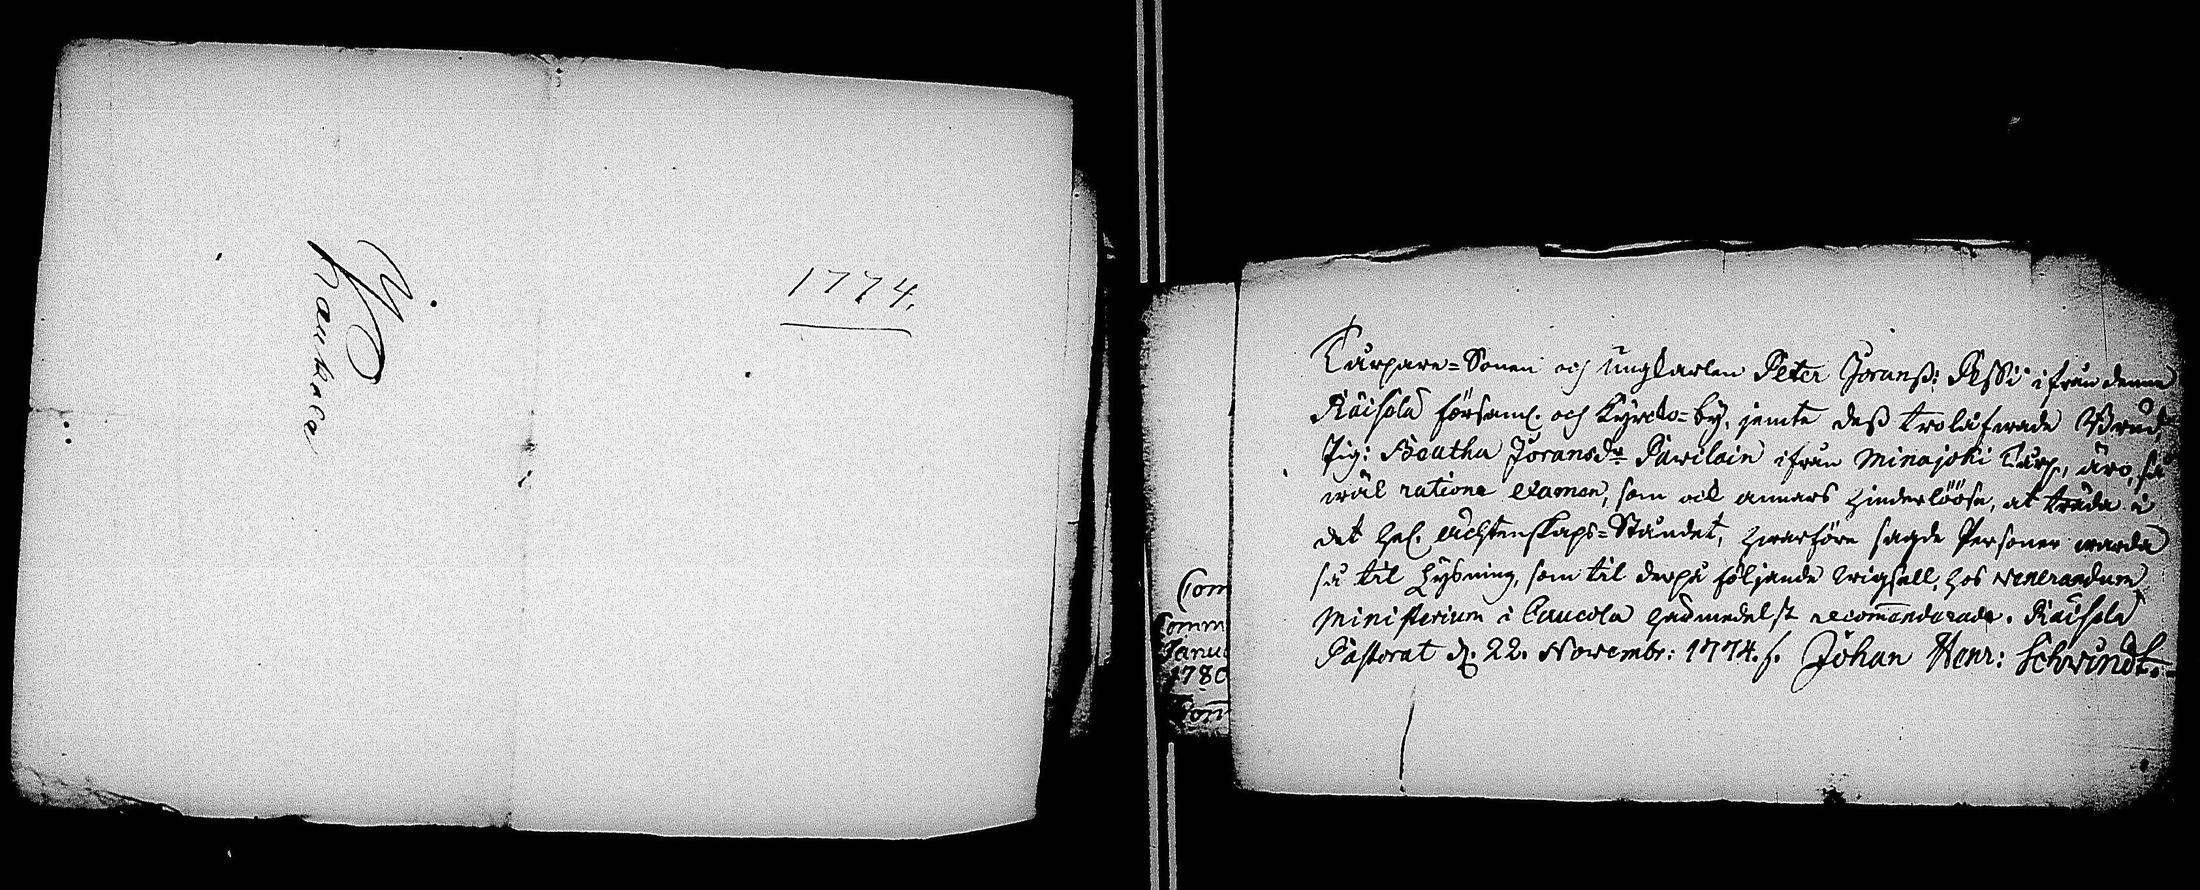 Kaukola
1774.
Com
Comm
Janua
1780
Torpare-Sonen och Ungkarlen Peter Joranss: Pessi ifrån denna
Räisälä församl. och Kyrcko-by, jemte dess trolåfwade Brud,
Pig: Beatha Joransdr Pawilain ifrån Minajoki Torp, äro, så
wäl ratione examen, som ock annars hinderlööse, at träda i
det hel. ächtenskaps-Ståndet, hwarföre sagde Personer warda
så til Lysning, som til derpå följande wigsell, hos Venerandum
Ministerium i Caucola hedmedelst recom̄enderade. Räisälä
Pastorat d. 22. Novembr: 1774. /. Johan Henr: Schwindt.